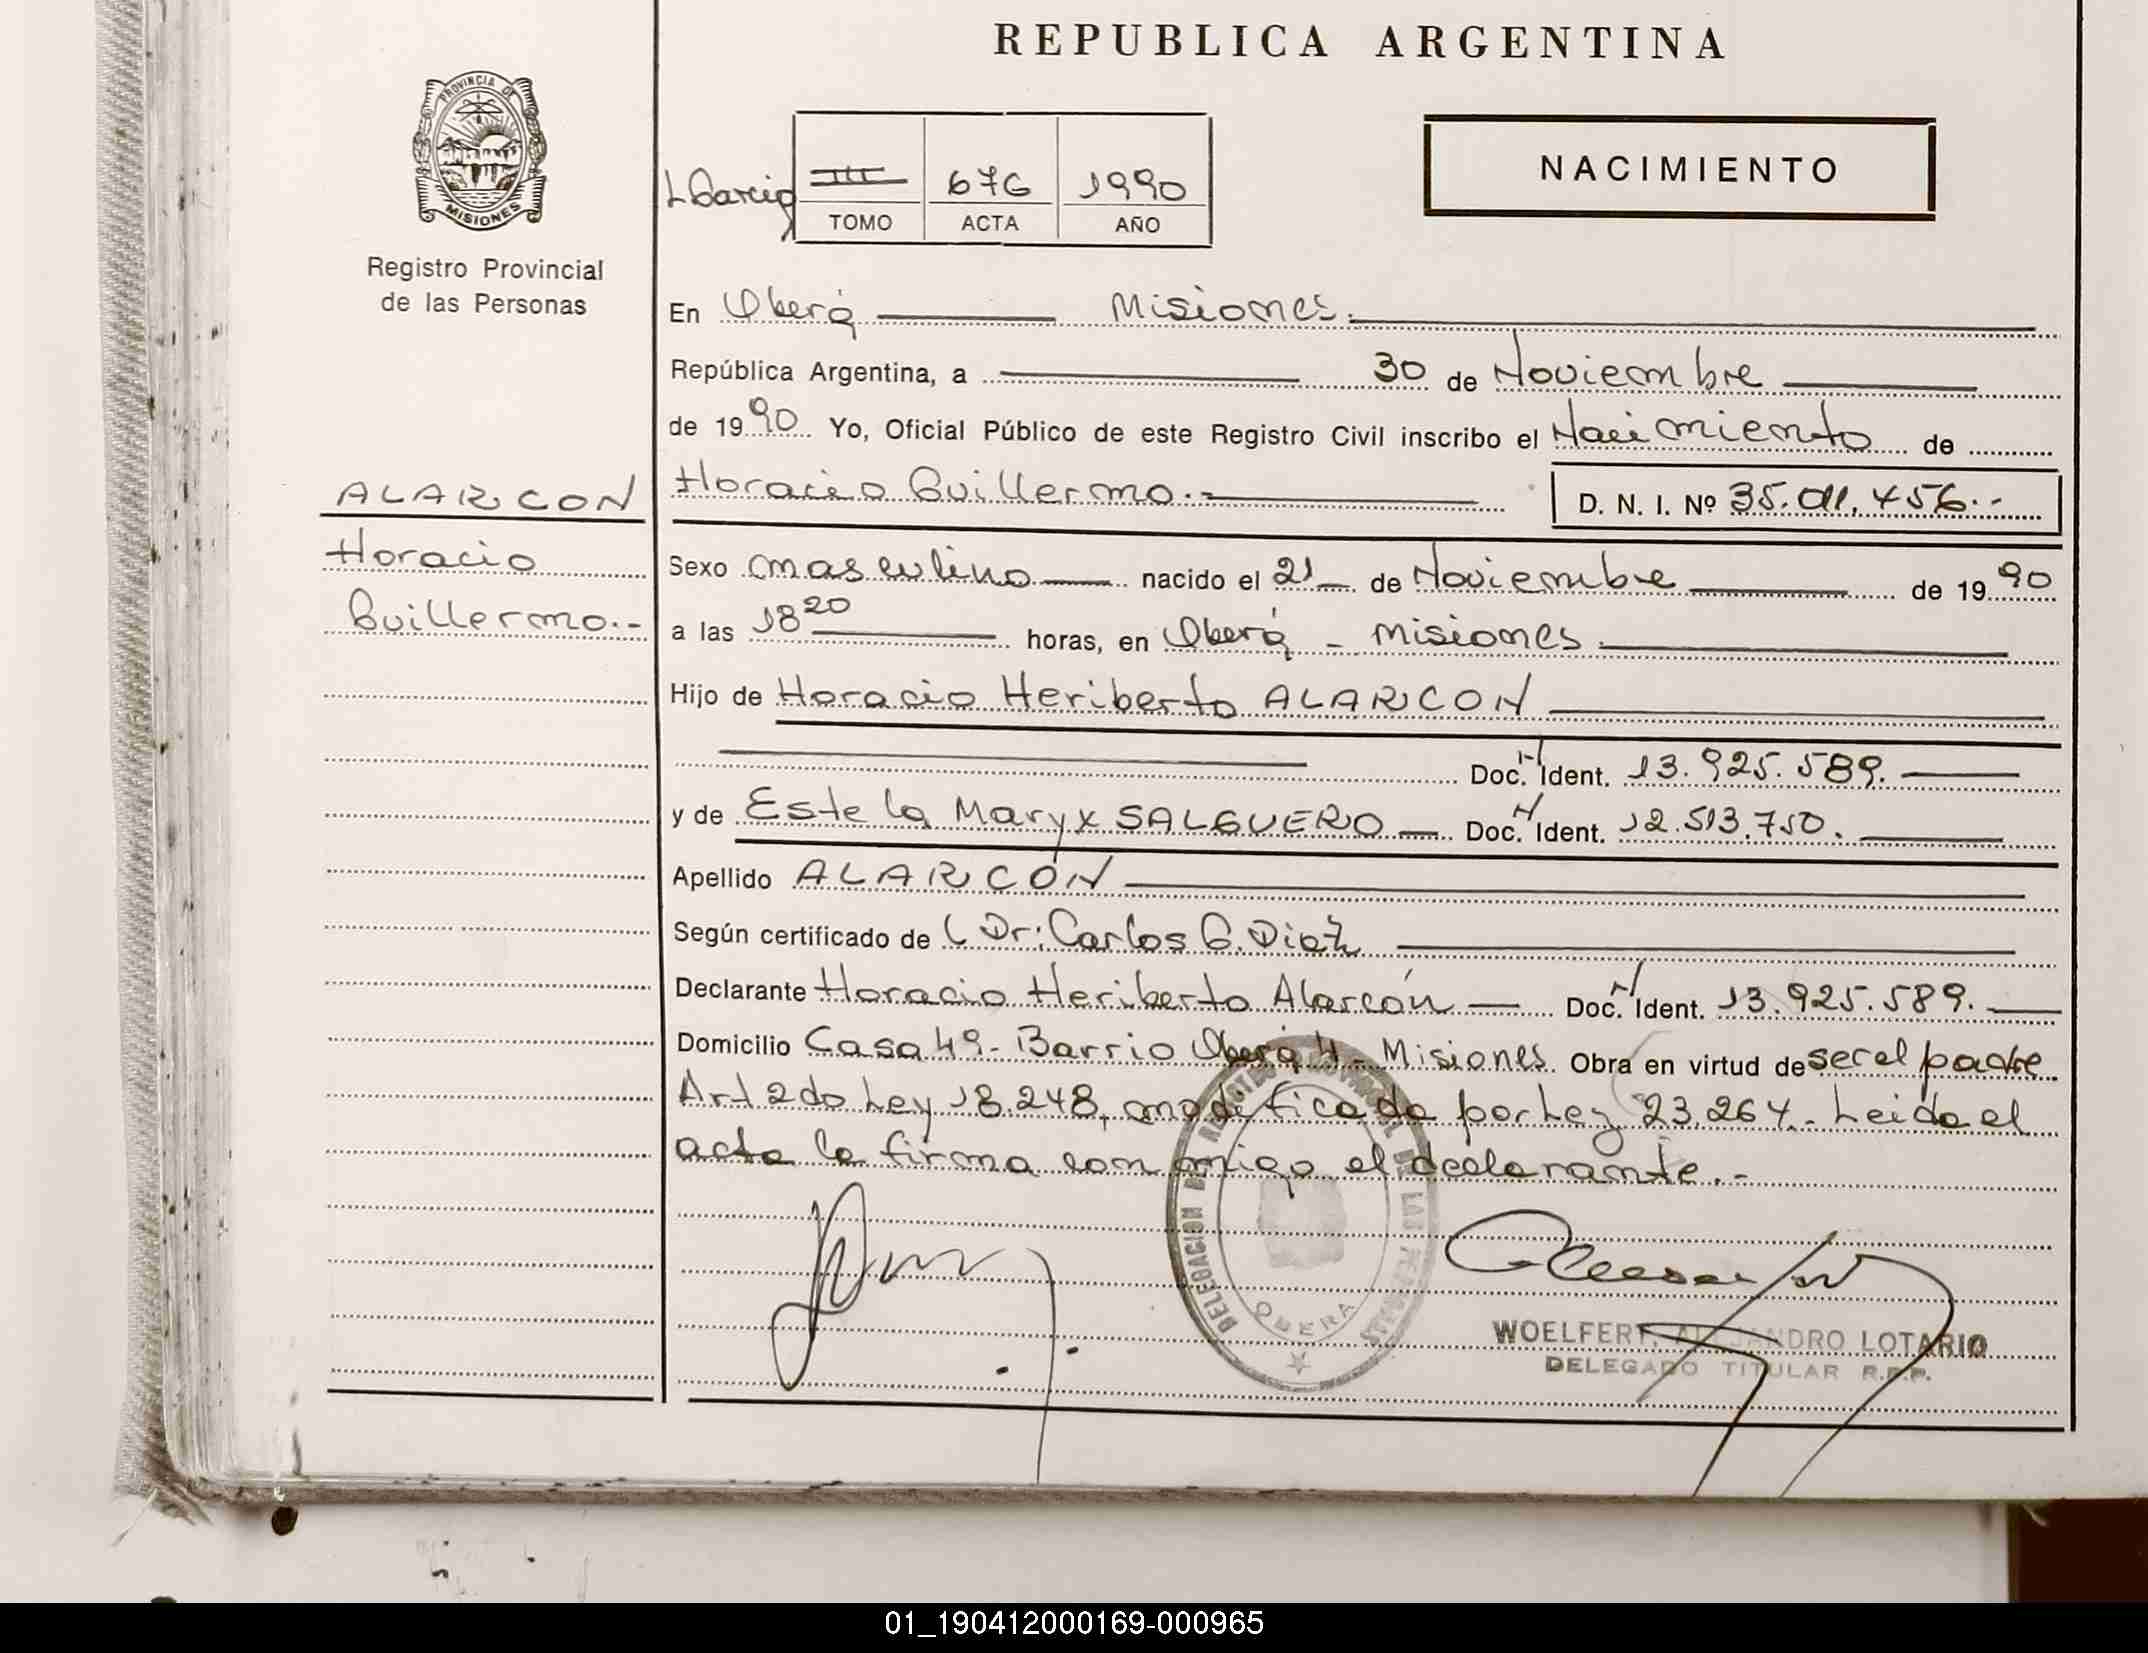 REPUBLICA ARGENTINA
PROVINCIA DE
MISIONES
Registro Provincial
de las Personas
NACIMIENTO
III 676 1990
TOMO ACTA AÑO
En Oberá Misiones.
República Argentina, a 30 de Noviembre
de 1990 Yo, Oficial Público de este Registro Civil inscribo el Nacimiento de
ALARCON
Horacio Guillermo.-
D. N. I. Nº 35.011.456.-
Horacio
Guillermo.-
Sexo masculino nacido el 21 de Noviembre de 1990
a las 18 20 horas, en Oberá - Misiones
Hijo de Horacio Heriberto ALARCON
Doc. N Ident. 13.925.589.
y de Estela Maryx SALGUERO Doc. N Ident. 12.513.750.
Apellido ALARCÓN
Según certificado de Dr: Carlos G. Diaz
Declarante Horacio Heriberto Alarcón Doc. N Ident. 13.925.589.
Domicilio Casa 49- Barrio Oberá 4 - Misiones. Obra en virtud de ser el padre.
Art 2do Ley 18.248, modificada por Ley 23.264.- Leida el
acta la firma conmigo el declarante.-
DELEGACION DEL REGISTRO PROVINCIAL DE LAS PERSONAS
OBERA
WOELFERT, ALEJANDRO LOTARIO
DELEGADO TITULAR R.P.P.
01_190412000169-000965